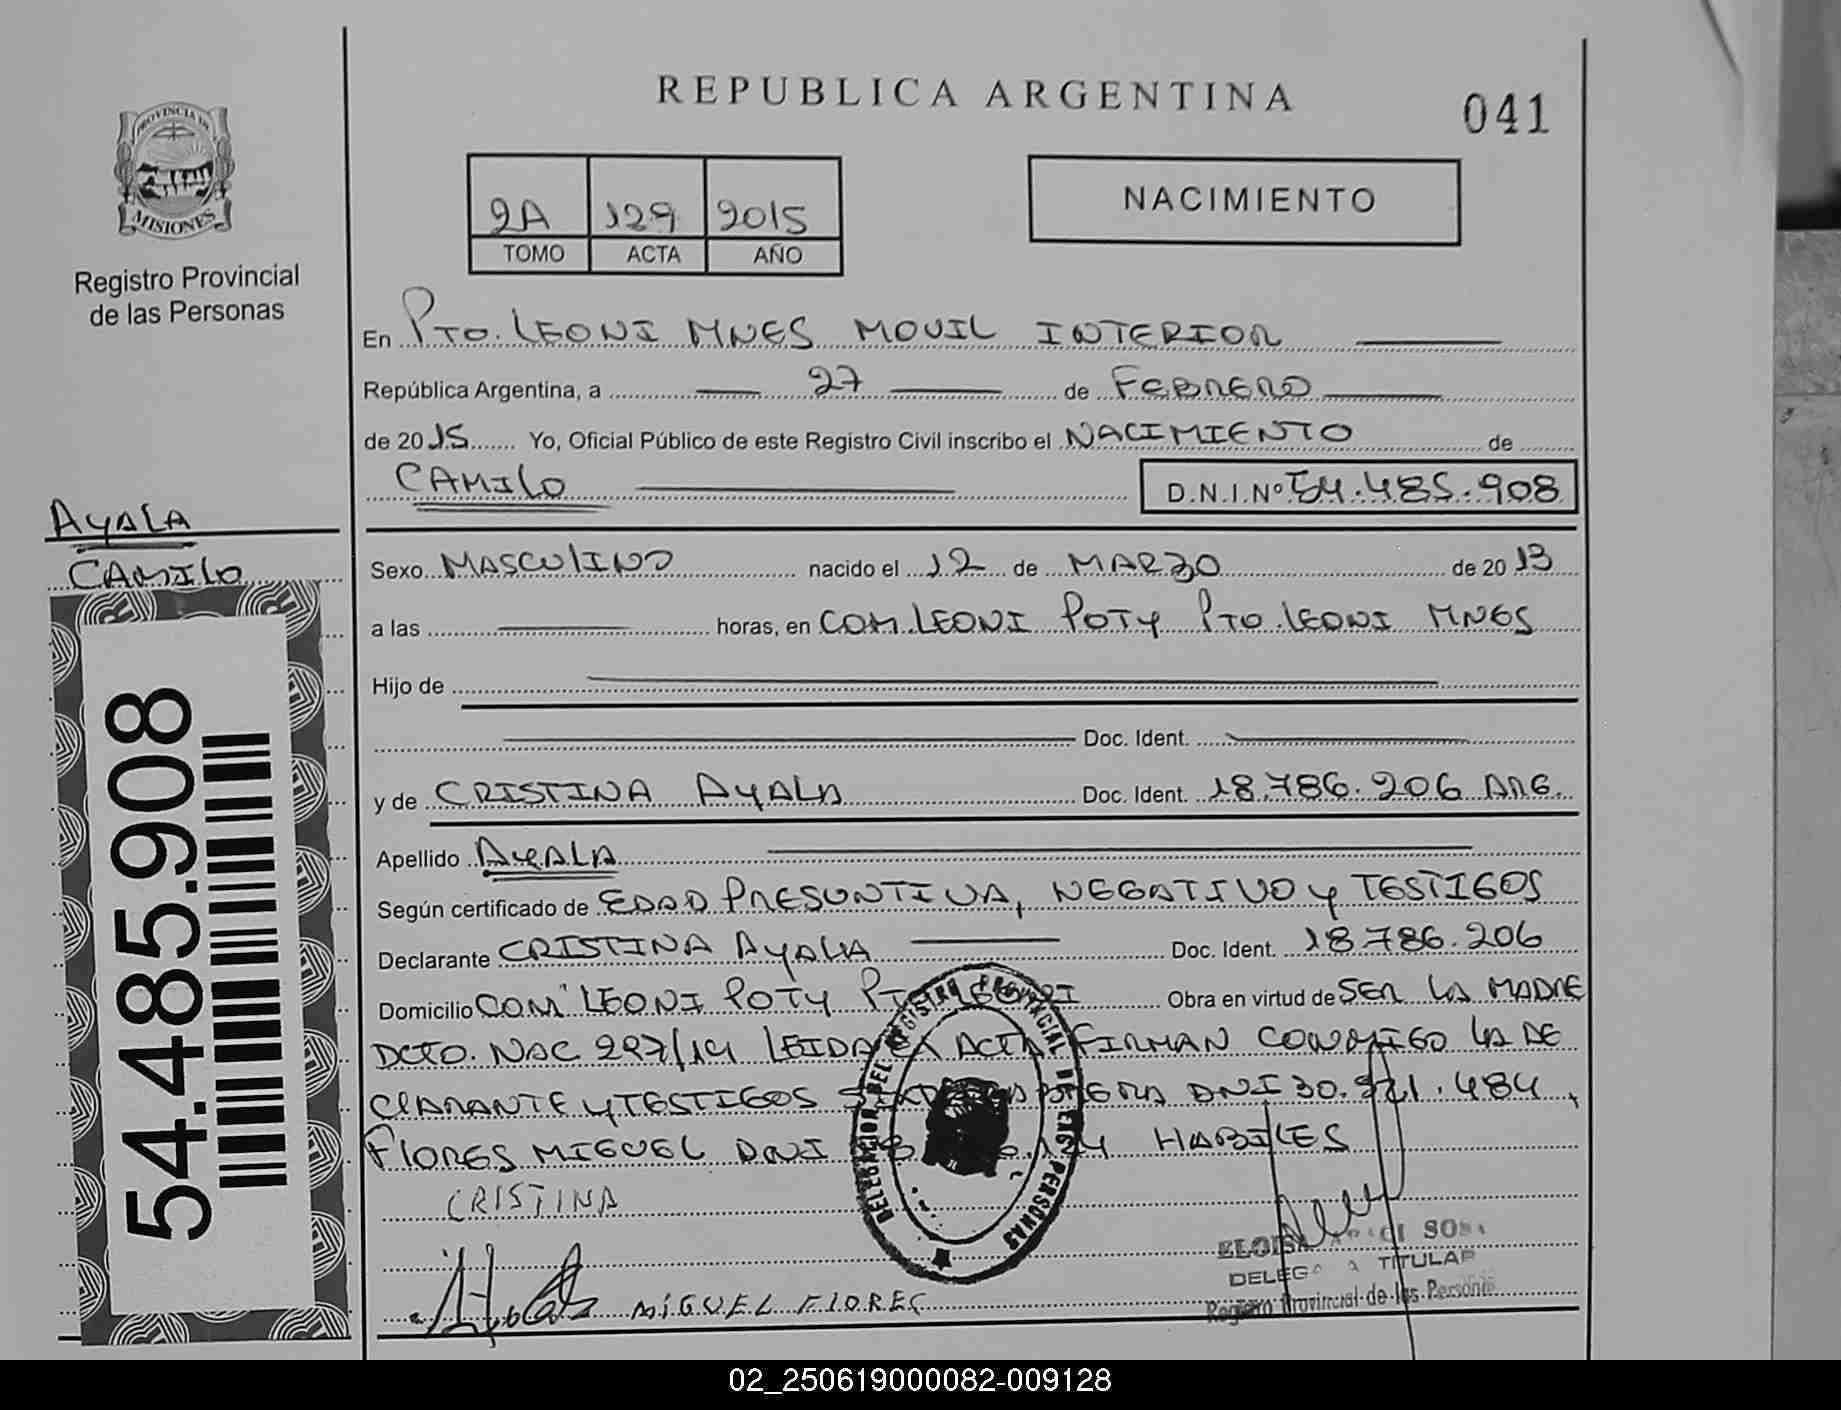 REPUBLICA ARGENTINA
041
PROVINCIA DE
MISIONES
Registro Provincial
de las Personas
2A 129 2015
TOMO ACTA AÑO
NACIMIENTO
En PTO. LEONI MNES MOVIL INTERIOR
República Argentina, a 27 de FEBRERO
de 2015 Yo, Oficial Público de este Registro Civil inscribo el NACIMIENTO de
CAMILO
D.N.I.Nº 54.485.908
AYALA
CAMILO
54.485.908
Sexo MASCULINO nacido el 12 de MARZO de 2013
a las horas, en COM. LEONI POTY PTO. LEONI MNES
Hijo de
Doc. Ident.
y de CRISTINA AYALA Doc. Ident. 18.786.206 ARG.
Apellido AYALA
Según certificado de EDAD PRESUNTIVA, NEGATIVO y TESTIGOS
Declarante CRISTINA AYALA Doc. Ident. 18.786.206
Domicilio COM LEONI POTY PTO LEONI Obra en virtud de SER LA MADRE
DCTO. NAC 297/14 LEIDA EL ACTA FIRMAN CONMIGO LA DE
CLARANTE y TESTIGOS DNI 30.921.484,
FLORES MIGUEL DNI HABILES
CRISTINA
MIGUEL FLORES
DELEGACION DEL REGISTRO PROVINCIAL DE LAS PERSONAS
ELOISA SOSA
DELEGADA TITULAR
Registro Provincial de las Personas
02_250619000082-009128